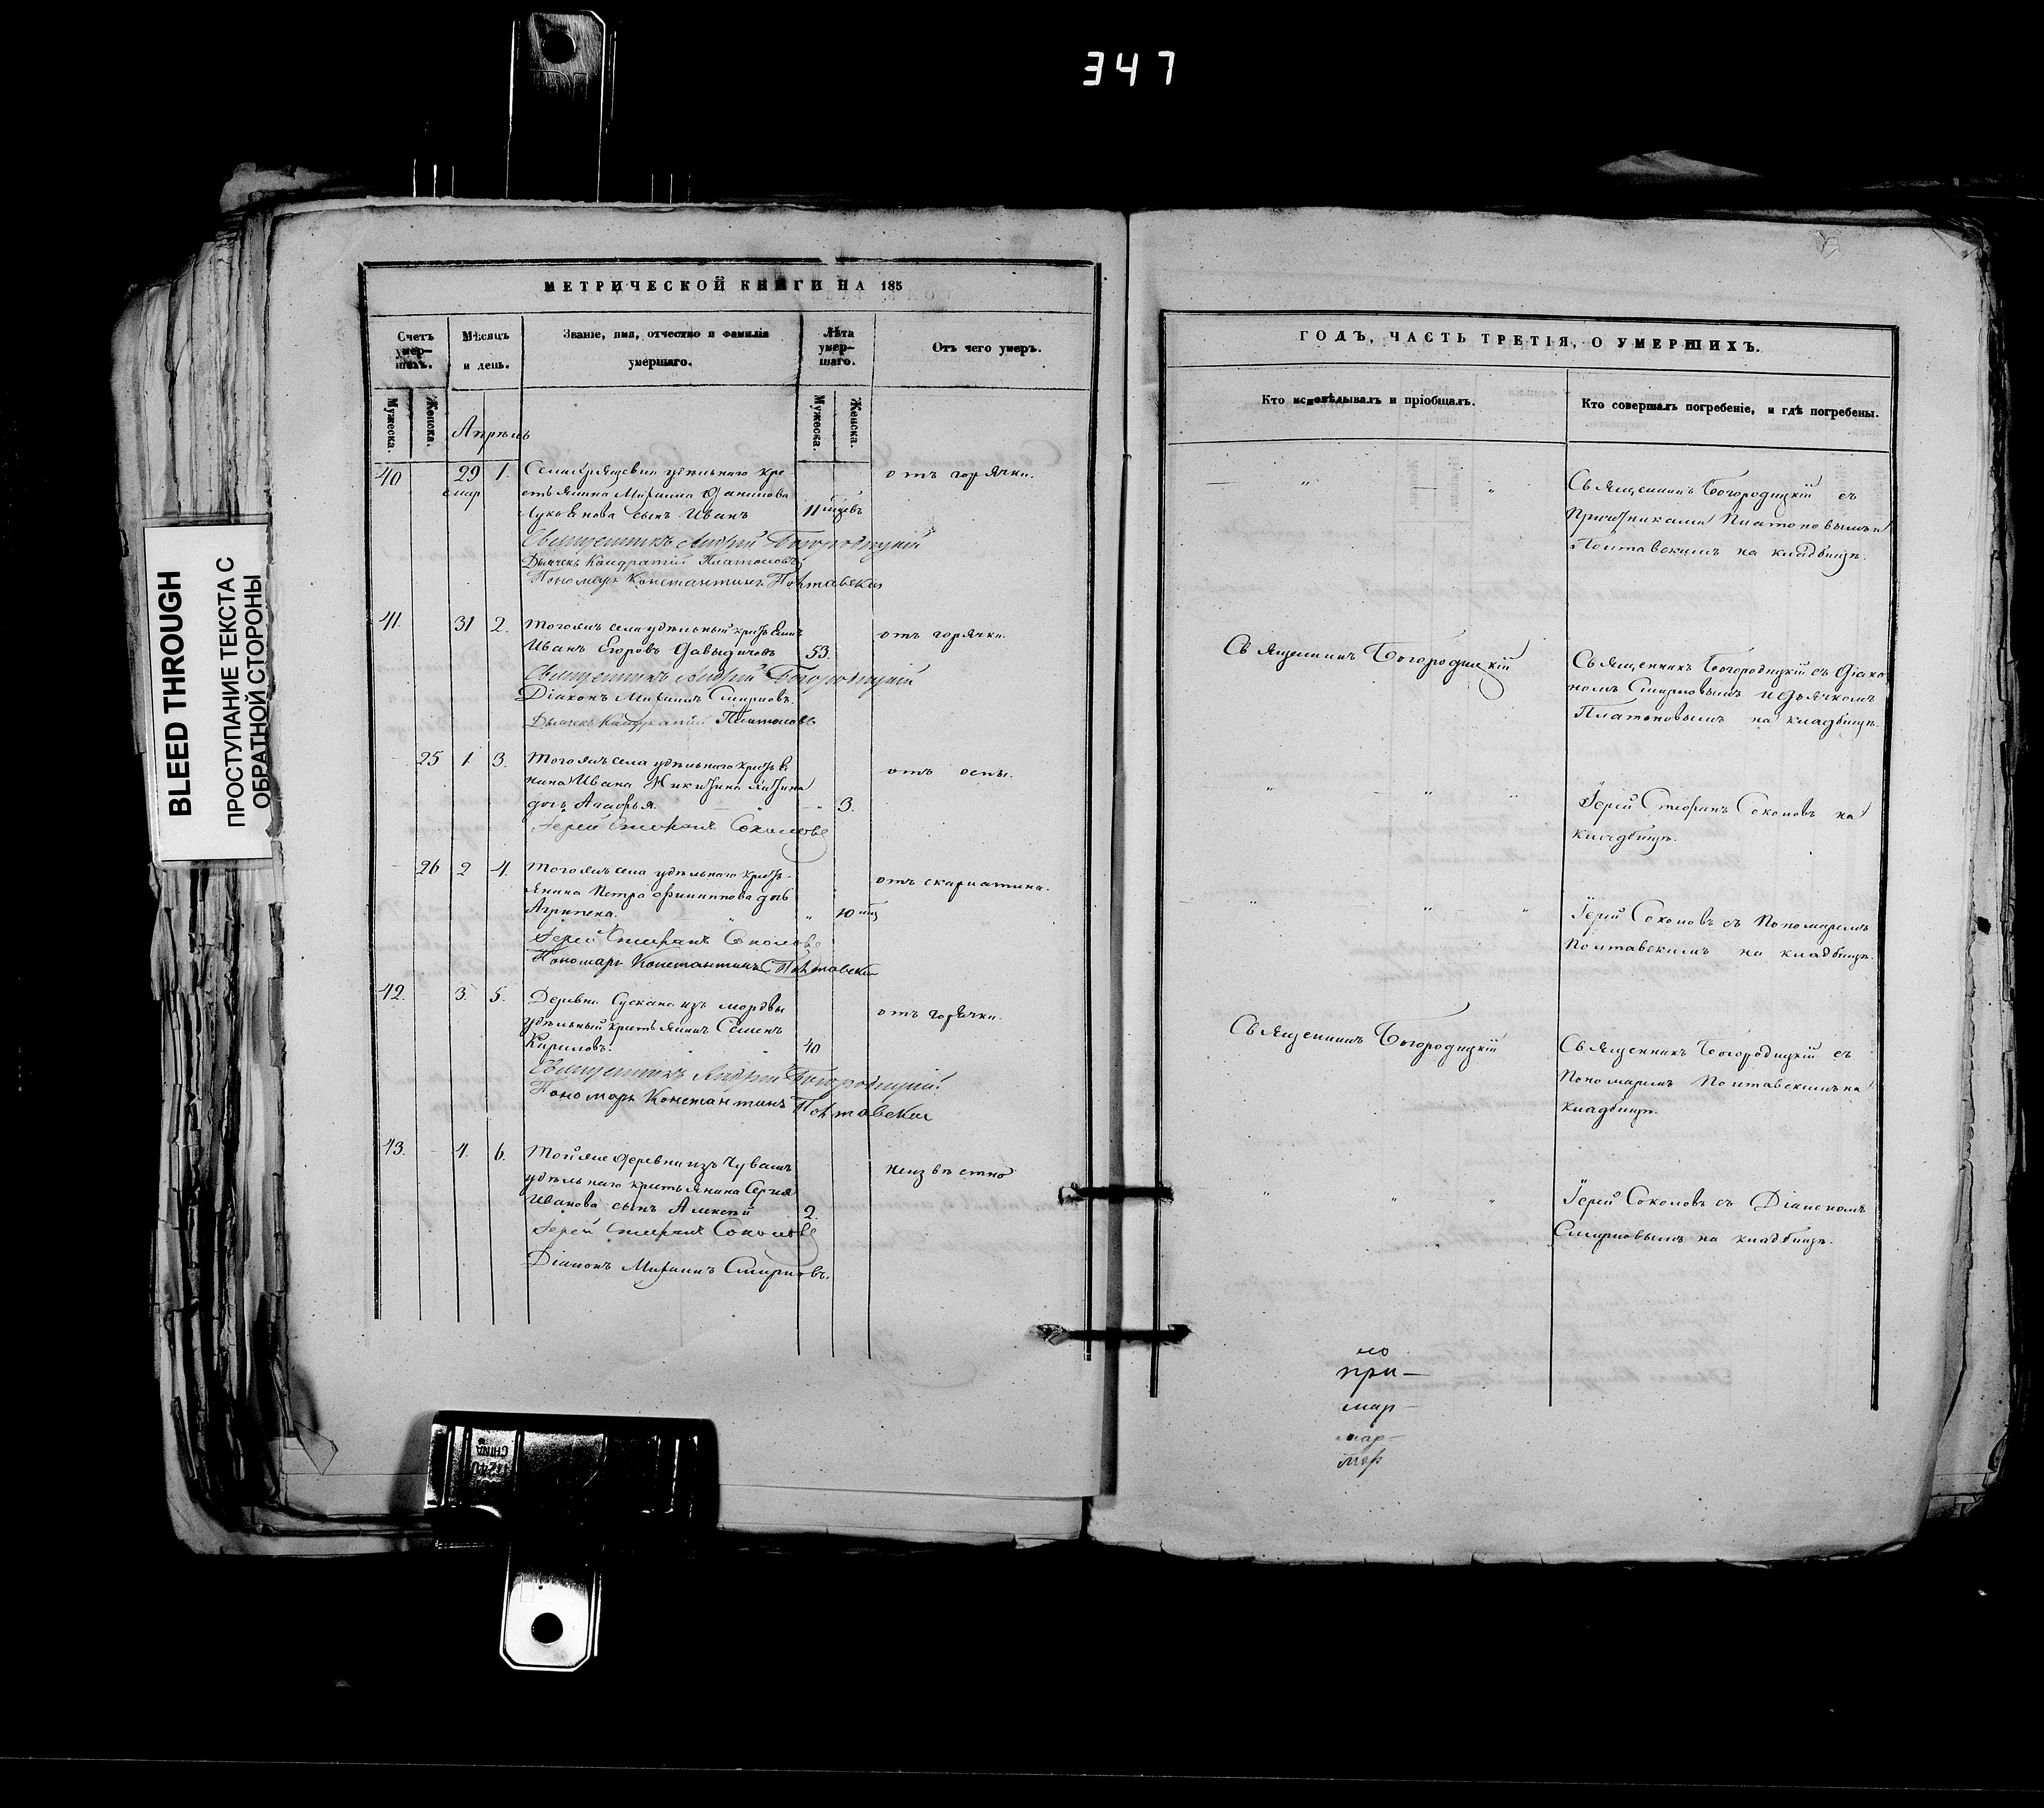 347
BLEED THROUGH
ПРОСТУПАНИЕ ТЕКСТА С
ОБРАТНОЙ СТОРОНЫ
МЕТРИЧЕСКОЙ КНИГИ НА 185
Счетъ умер-шихъ.
Мѣсяцъ и день.
Званіе, имя, отчество и фамилія умершаго.
Лѣта умер-шаго.
Отъ чего умеръ.
Мужеска.
Женска.
Мужеска.
Женска.
Апрѣль
40 29 1. Села удѣльнаго кре отъ горячки.
мар стьянина Михаила
Лукьянова сынъ Иванъ 11
Священникъ Андрей Богородицкій
Дьячекъ Кондратій Платоновъ
Пономарь Константинъ Полтавскій
41. 31 2. Тогожъ села удѣльный крестьянинъ отъ горячки.
Иванъ Егоровъ Давыдичевъ 53.
Священникъ Андрей Богородицкій
Діаконъ Михаилъ Смирновъ.
Дьячекъ Кондратій Платоновъ
25 1 3. Тогожъ села удѣльнаго крестья отъ оспы.
нина Ивана Никитина
дочь Агафья. 3.
Іерей Стефанъ Соколовъ
26 2 4. Тогожъ села удѣльнаго кресть- отъ скарлатина.
янина Петра Филиппова дочь
Агрипена. 10
Іерей Стефанъ Соколовъ
Пономарь Константинъ Полтавскій
42. 3. 5. Деревни Сускана изъ мордвы отъ горячки.
удѣльный крестьянинъ Семенъ
Кириловъ. 40
Священникъ Андрей Богородицкій
Пономарь Константинъ Полтавскій
43. 4. 6. Той же деревни изъ Чувашъ неизвѣстно
удѣльнаго крестьянина Сергея
Иванова сынъ Алексѣй 2.
Іерей Стефанъ Соколовъ
Діаконъ Михаилъ Смирновъ.
ГОДЪ, ЧАСТЬ ТРЕТІЯ, О УМЕРШИХЪ.
Кто исповѣдывалъ и пріобщалъ.
Кто совершалъ погребеніе, и гдѣ погребены.
Священникъ Богородицкій съ
Причетниками Платоновымъ и
Полтавскимъ на кладбищѣ.
Священникъ Богородицкій
Священникъ Богородицкій съ Діако
номъ Смирновымъ и дьячкомъ
Платоновымъ на кладбищѣ.
Іерей Стефанъ Соколовъ на
кладбищѣ.
Іерей Соколовъ съ Пономаремъ
Полтавскимъ на кладбищѣ.
Священникъ Богородицкій
Священникъ Богородицкій съ
Пономаремъ Полтавскимъ на
кладбищѣ.
Іерей Соколовъ съ Діакономъ
Смирновымъ на кладбищѣ.
при-
мар-
мар-
CHINA